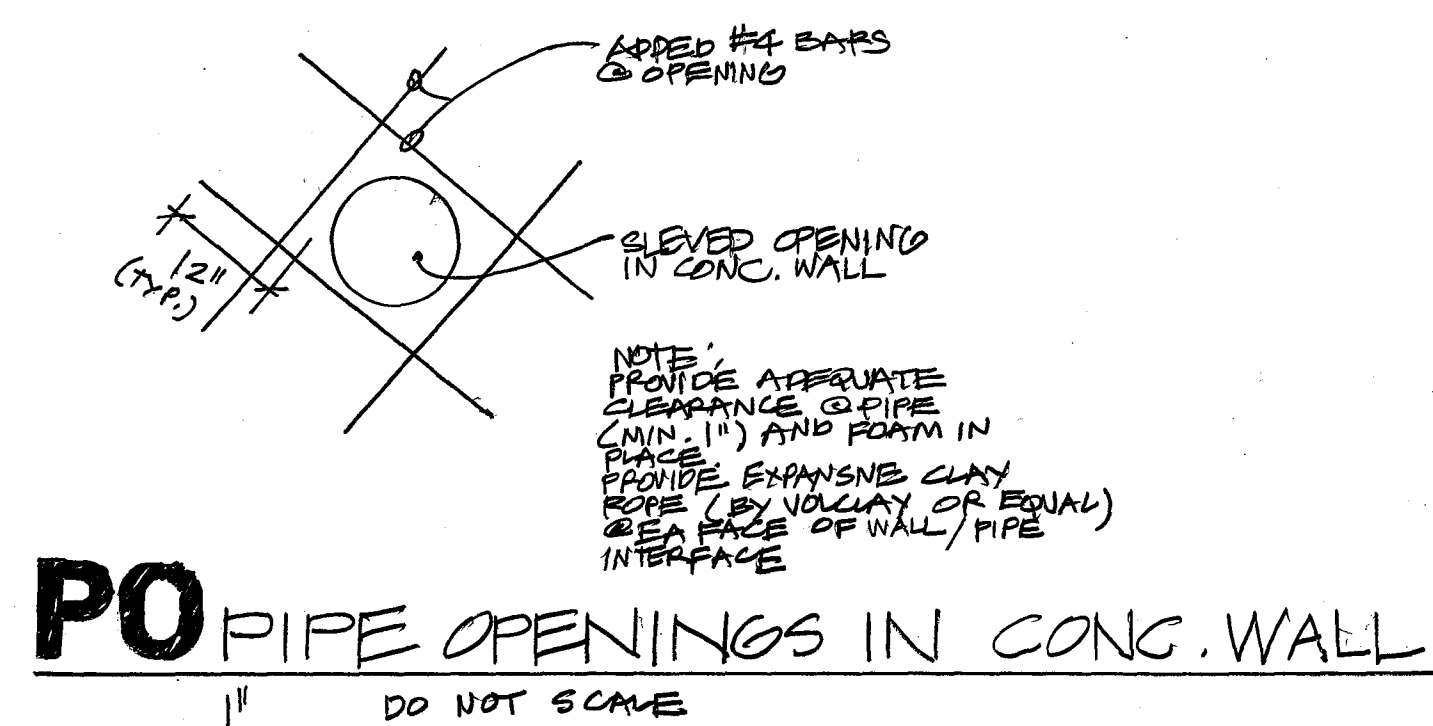 ADDED #4 BARS
@ OPENING
SLEVED OPENING
IN CONC. WALL
12"
(TYP.)
NOTE:
PROVIDE ADEQUATE
CLEARANCE @ PIPE
(MIN. 1") AND FOAM IN
PLACE.
PROVIDE EXPANSIVE CLAY
ROPE (BY VOLCLAY OR EQUAL)
@ EA FACE OF WALL/PIPE
INTERFACE
PO PIPE OPENINGS IN CONC. WALL
1" DO NOT SCALE